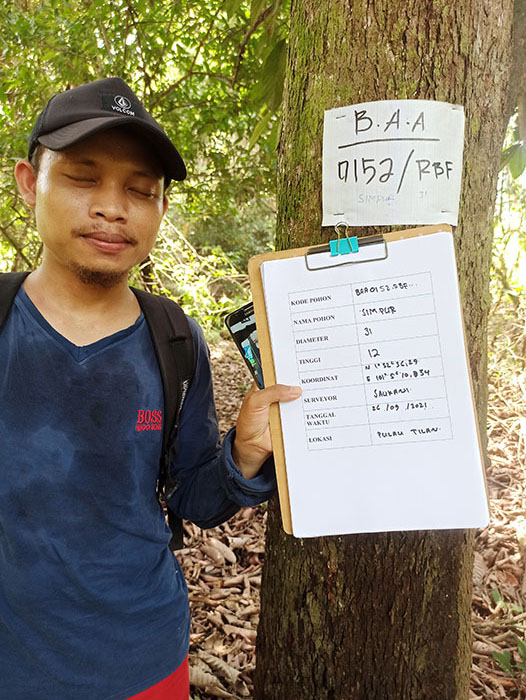 VOLCOM
B.A.A
0152/RBF
SIMPUR 31
KODE POHON BAA0152.RBF...
NAMA POHON SIMPUR
DIAMETER 31
TINGGI 12
KOORDINAT N 1° 52' 56,29
E 101° 5' 10,834
SURVEYOR SAUKANI
TANGGAL WAKTU 26/09/2021
LOKASI PULAU TILAN
BOSS
HUGO BOSS